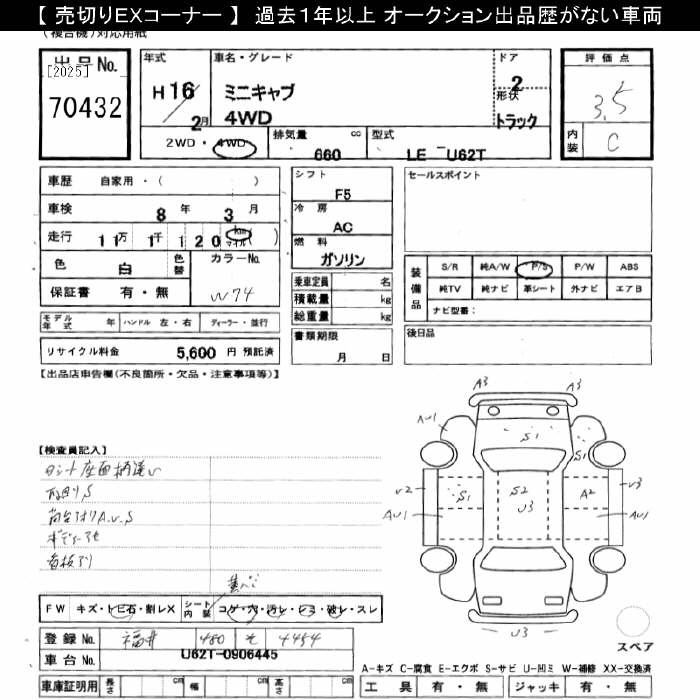 【 売切りEXコーナー 】 過去1年以上 オークション出品歴がない車両
(複合機)対応用紙
出品No.
[2025]
70432
年式
H 16
2月
車名・グレード
ミニキャブ
4WD
ドア
2
形状
トラック
2WD・4WD
排気量 cc
660
型式
LE - U62T
評価点
3.5
内装
C
車歴 自家用・( )
車検 8 年 3 月
走行 11万 1千 120 (km マイル)
色 白 色替 カラーNo.
保証書 有・無 W74
モデル年式 年 ハンドル 左・右 ディーラー・並行
リサイクル料金 5,600 円 預託済
シフト
F5
冷房
AC
燃料
ガソリン
乗車定員 名
積載量 kg
総重量 kg
書類期限
月 日
セールスポイント
装備品
S/R 純A/W P/S P/W ABS
純TV 純ナビ 革シート 外ナビ エアB
ナビ型番:
後日品
【出品店申告欄(不良箇所・欠品・注意事項等)】
【検査員記入】
荷台アオリA.U.S
看板アリ
A3 A3
AU1 S1 S1
U2 S1 S2 A2 U3
AU1 U3 AU1
U3
スペア
FW キズ・トビ石・割レX シート内装 コゲ・穴・汚レ・シミ・破レ・スレ
登録No. 福井 480 そ 4454
車台No. U62T-0906445
A-キズ C-腐食 E-エクボ S-サビ U-凹ミ W-補修 XX-交換済
車庫証明用 長さ cm 幅 cm 高さ cm
工具 有・無 ジャッキ 有・無